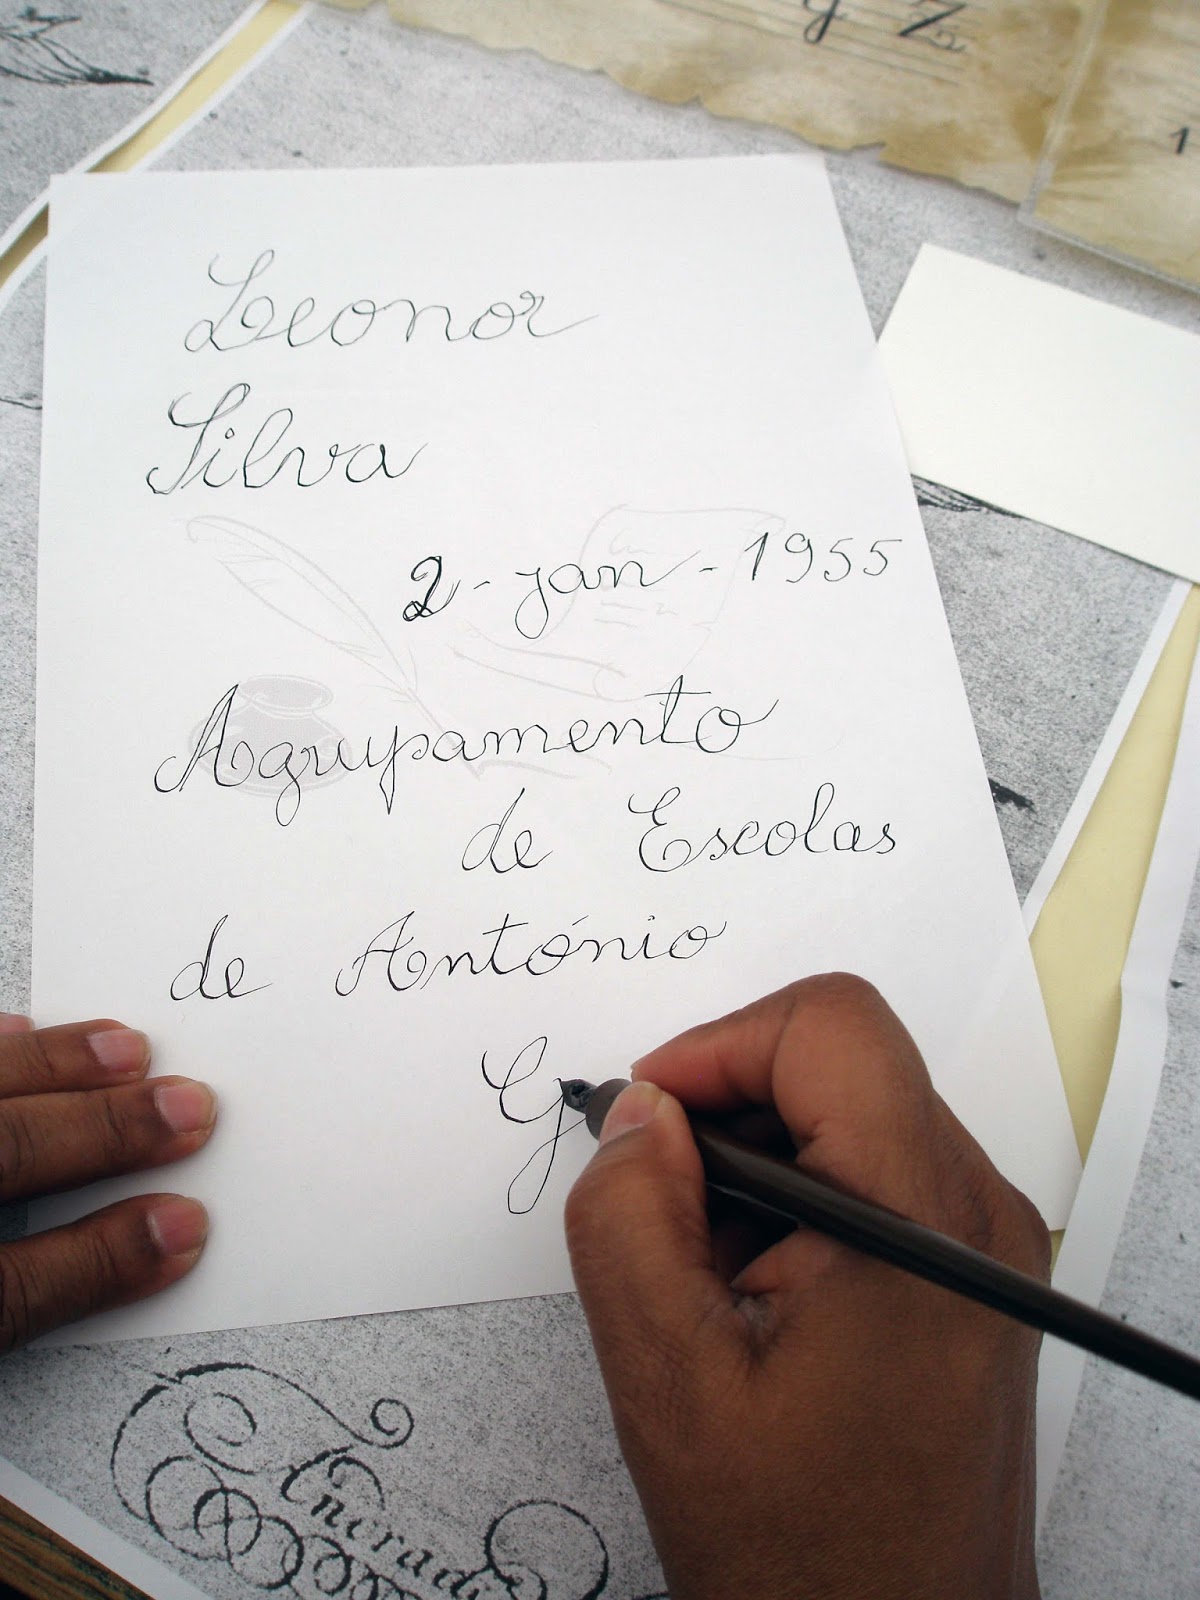 y Z
1
Leonor
Silva
2-jan-1955
Agrupamento
de Escolas
de António
G